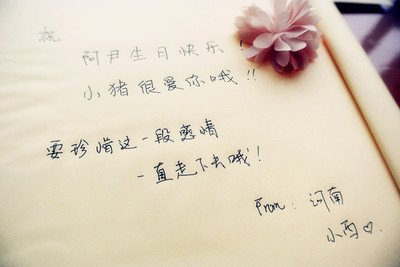 祝
阿尹生日快乐!
小猪很爱你哦!!
要珍惜这一段恋情
一直走下去哦!
From: 河南
小西♡.